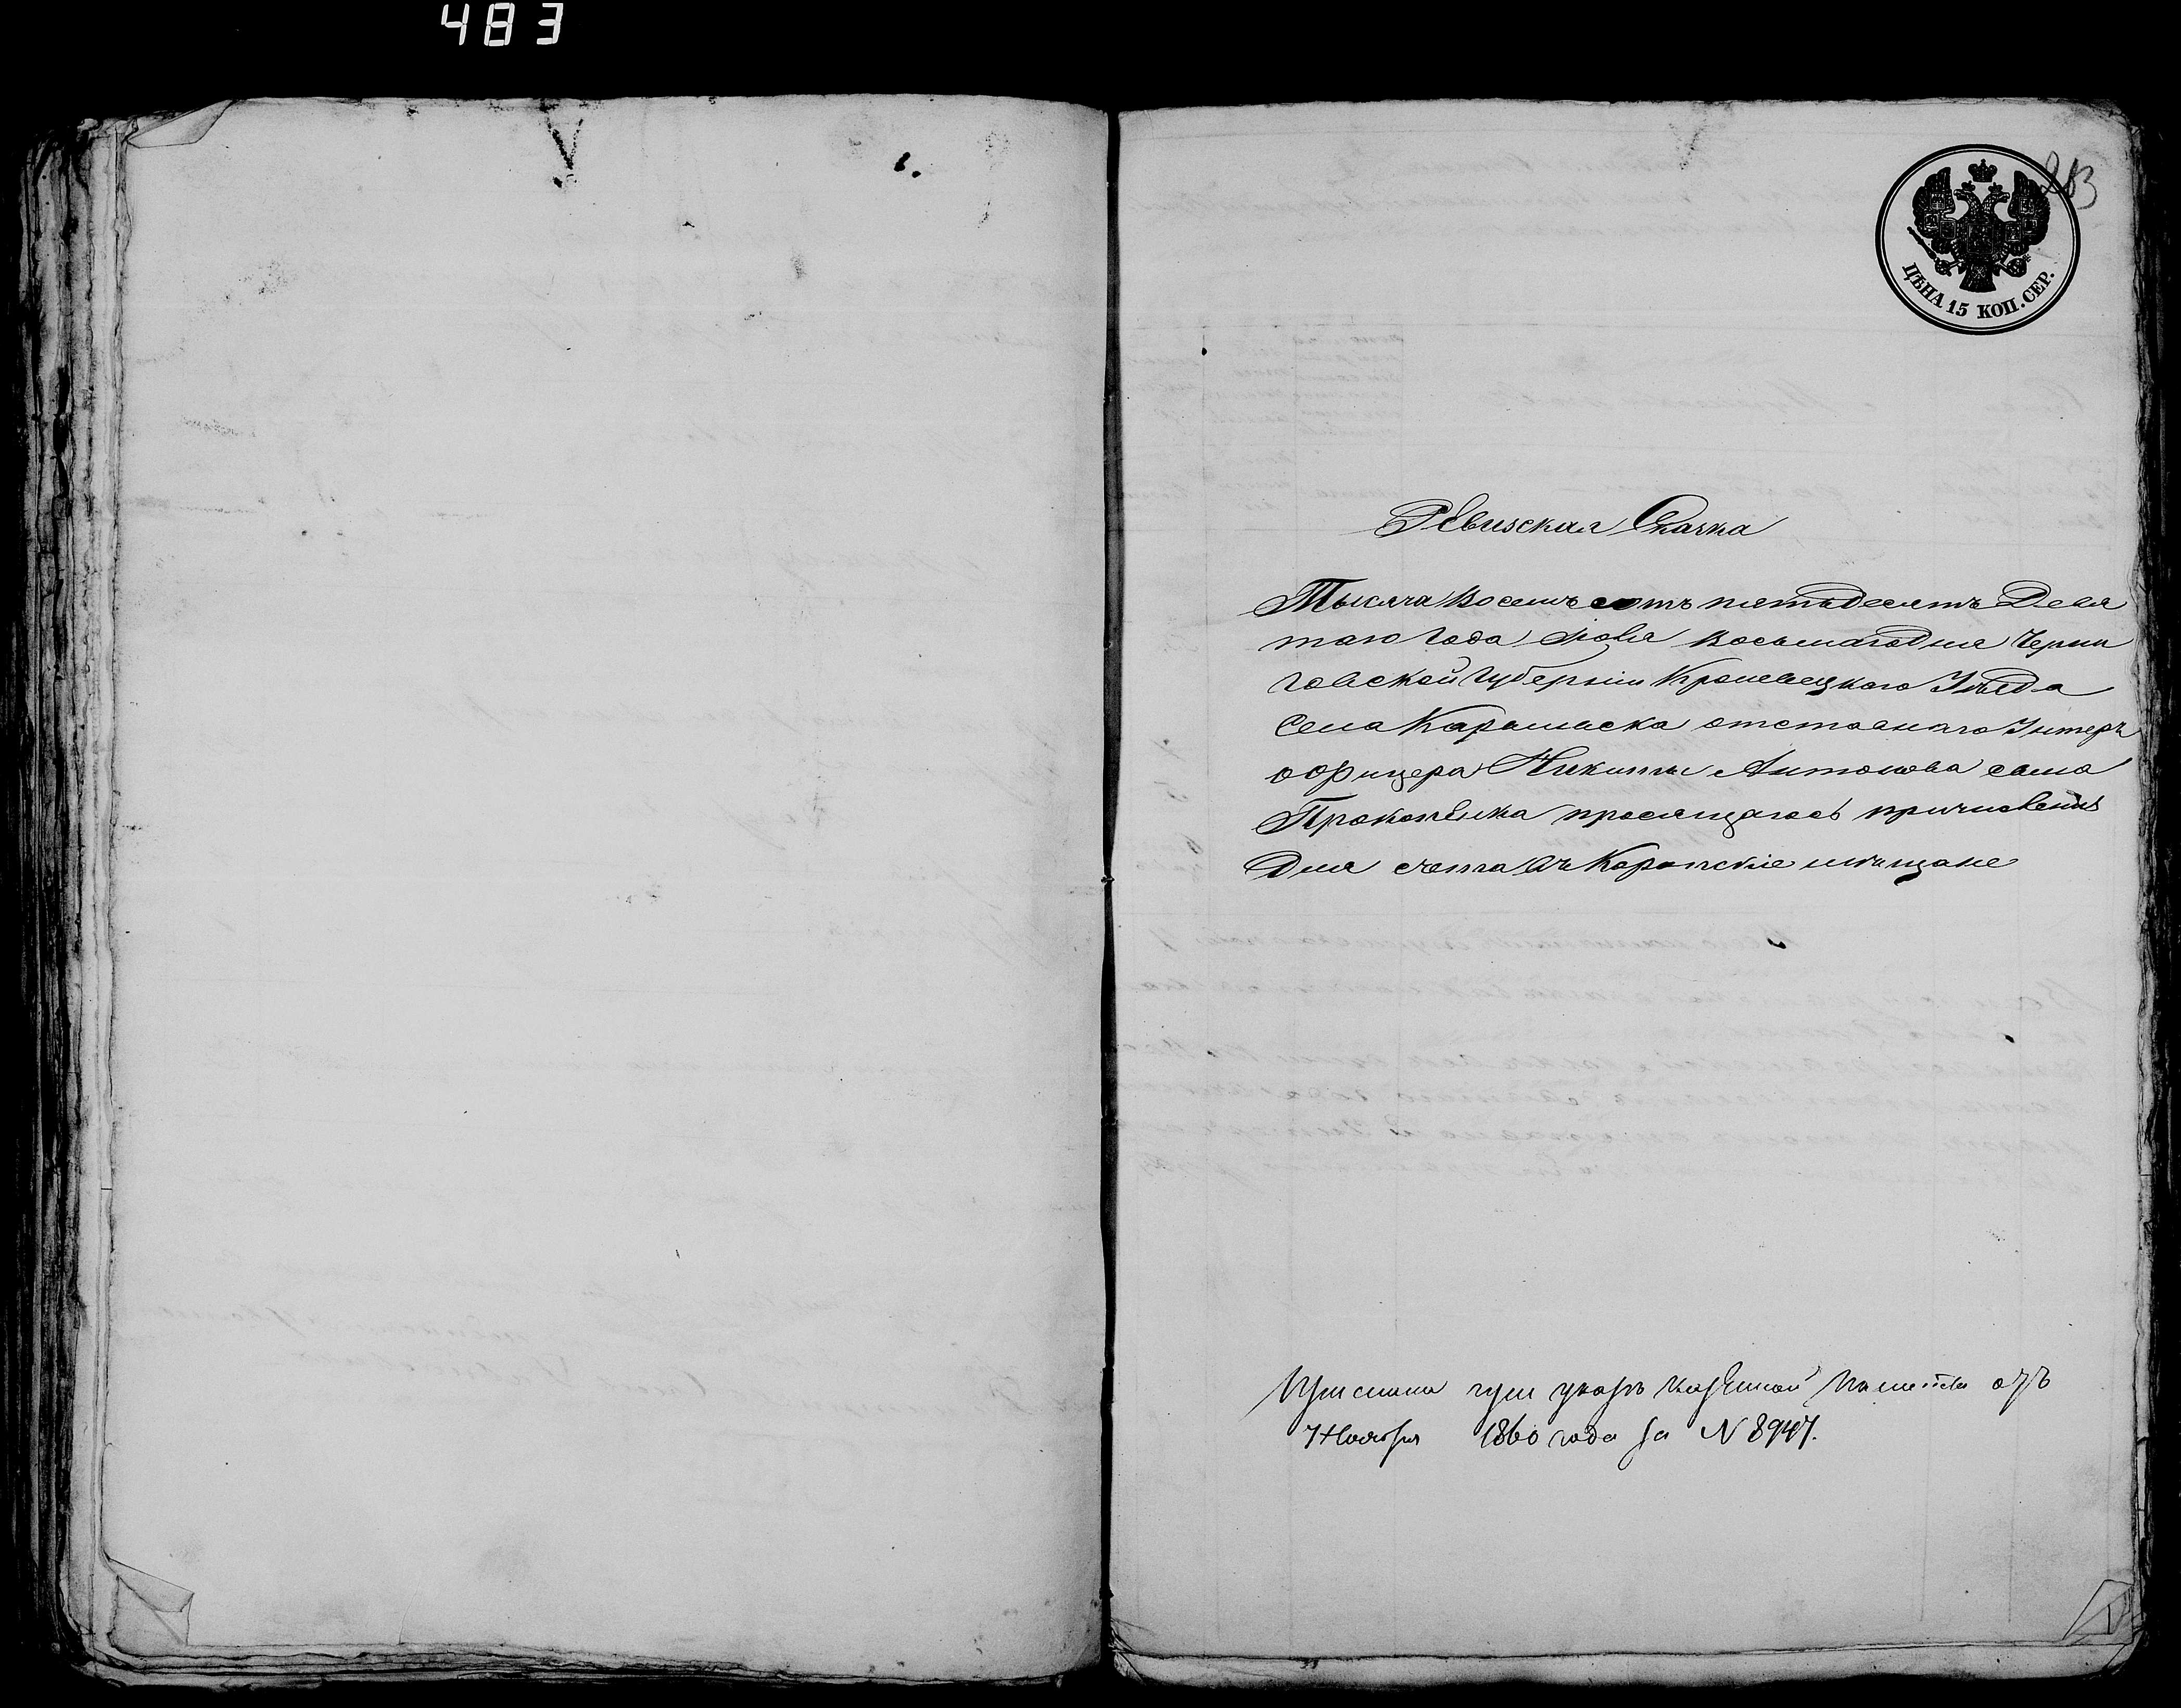 483
ЦѢНА 15 КОП. СЕР.
Ревизская Сказка
Тысяча восемъ сотъ пятьдесятъ Девя
таго Года Іюля восьмаго дня Черни
говской Губерніи Кролевецкаго Уѣзда
Села отставнаго Унтеръ
офицера Никиты Антонова сына
Прокопенка просящагось причисленія
Для счета въ Коропскіе мѣщане
при указѣ Казенной Палаты отъ
7 Ноября 1860 года за N 8947.